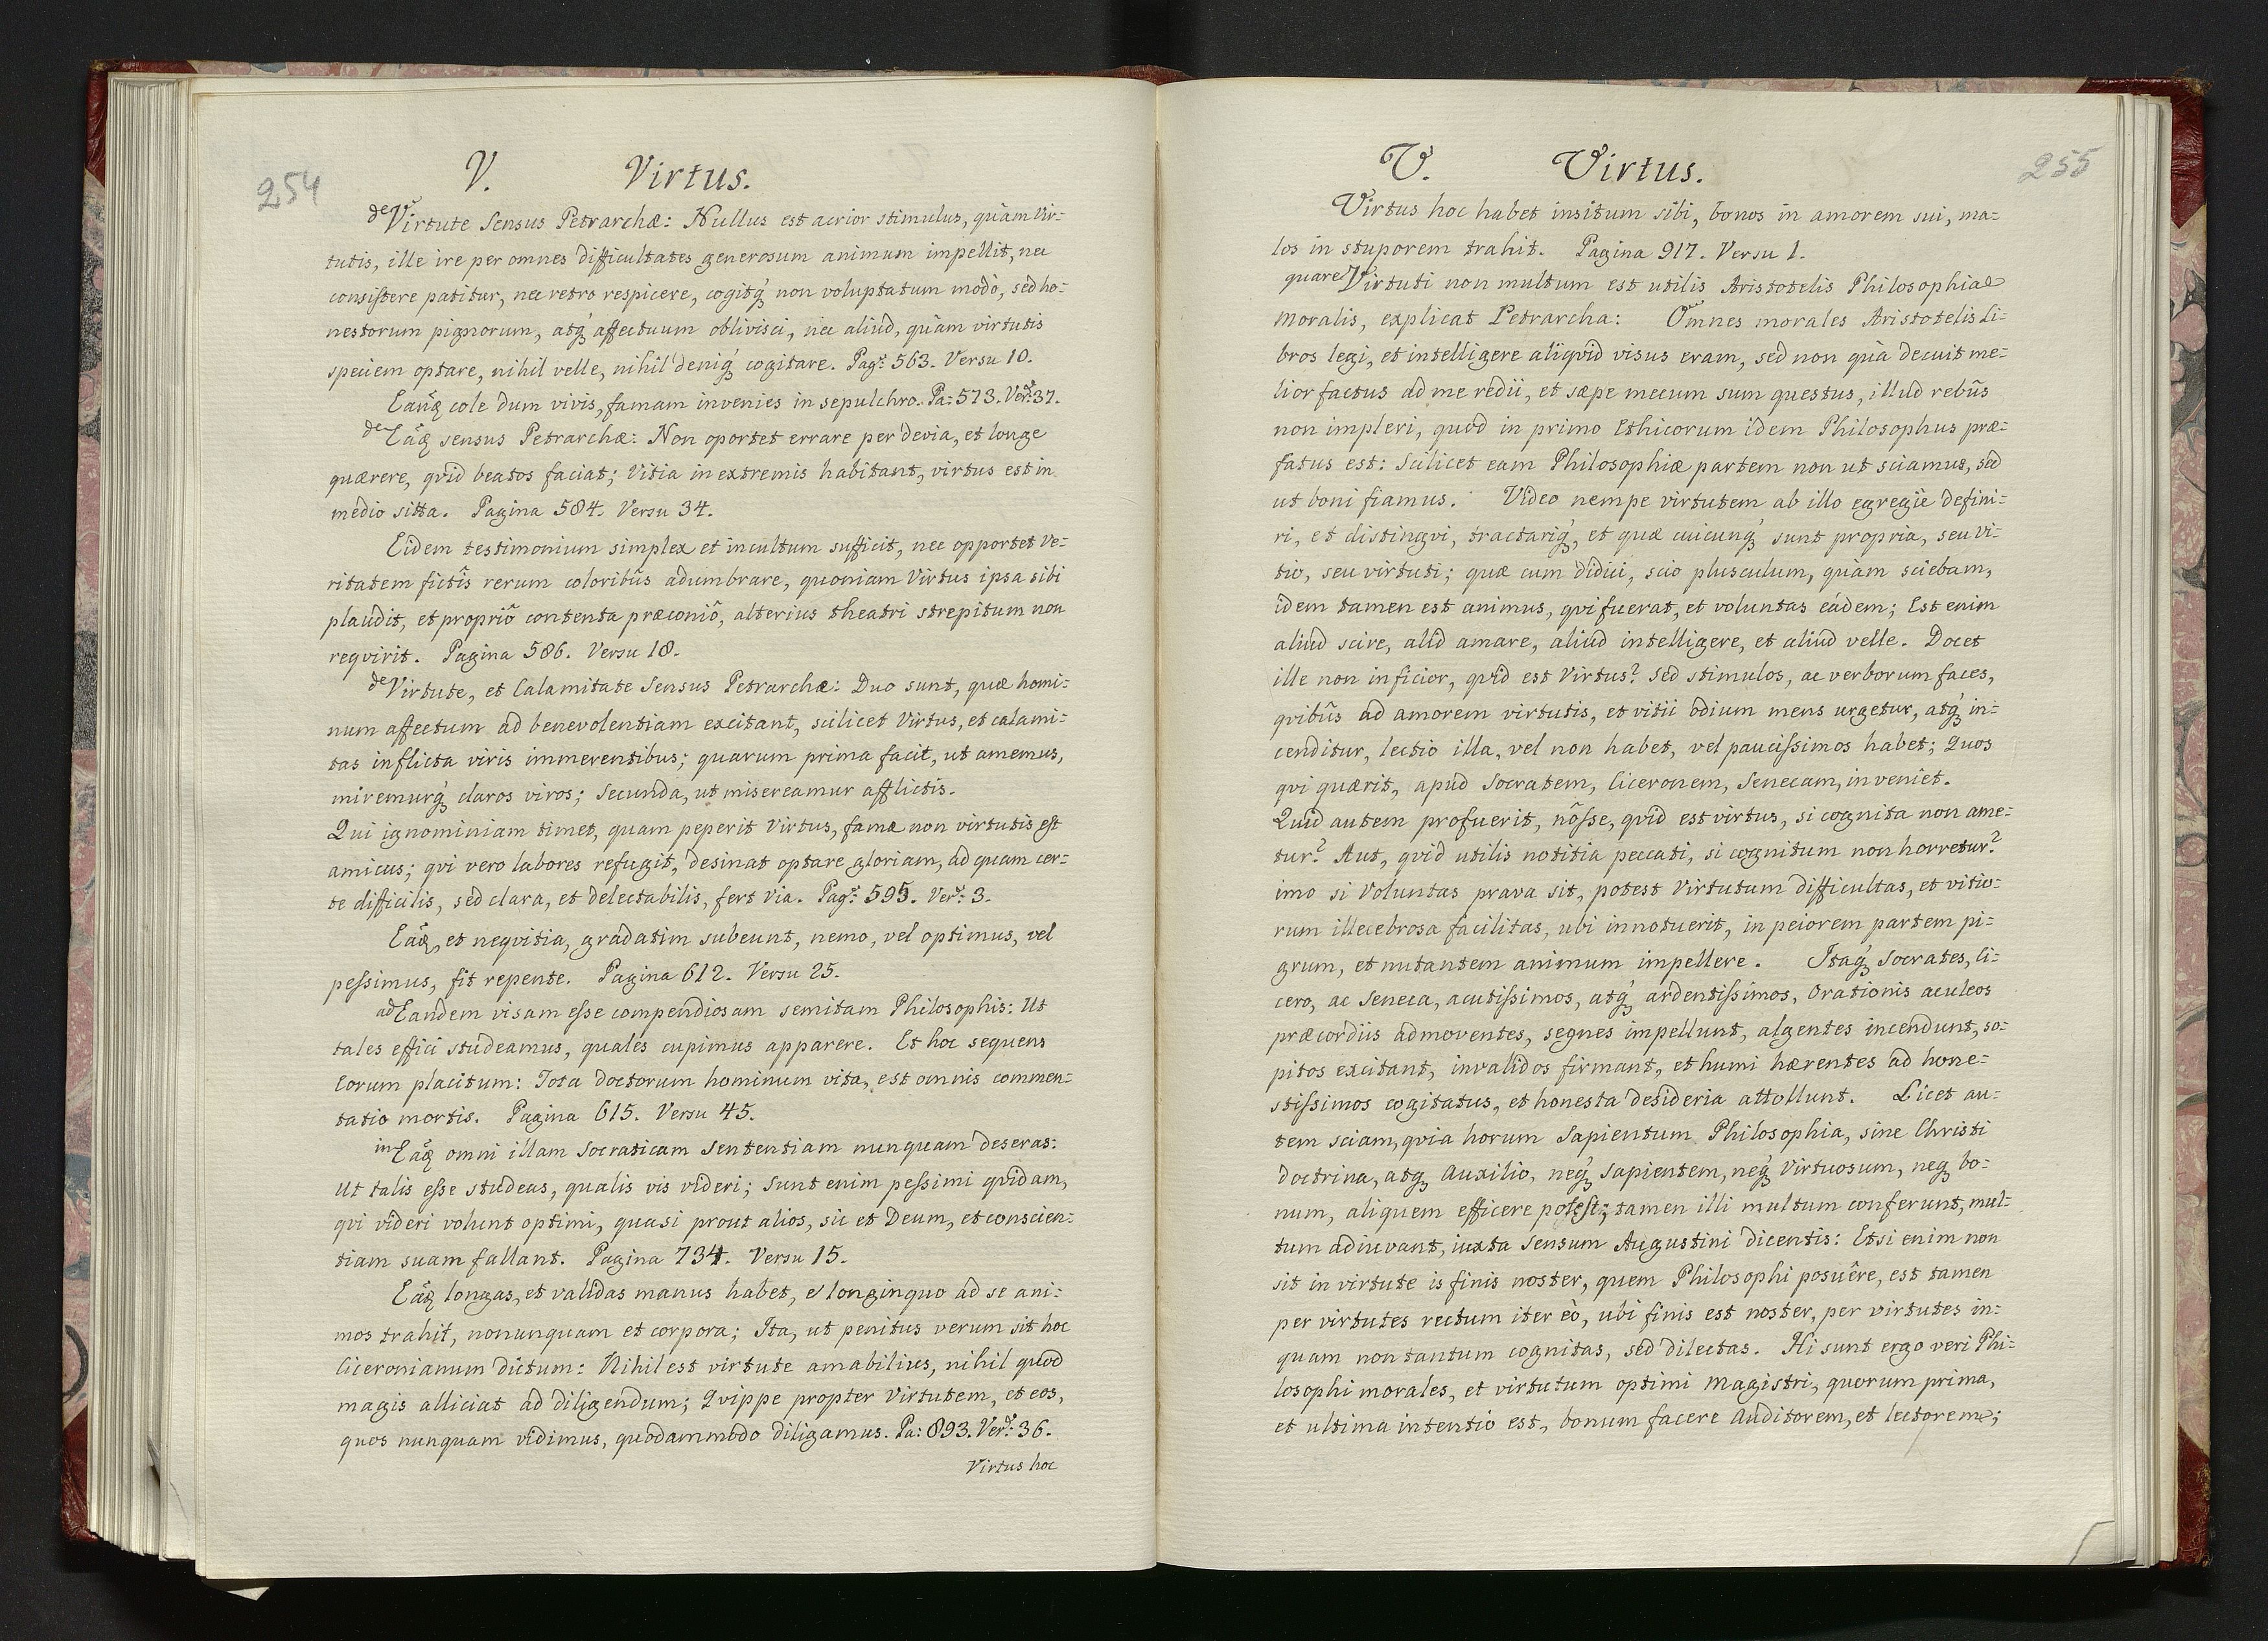 254
V. Virtus.
de Virtute Sensus Petrarchæ: Nullus est acrior stimulus, quàm Vir=
tutis, ille ire per omnes difficultates generosum animum impellit, nec
consistere patitur, nec retro respicere, cogitq́ non voluptatum modò, sed ho=
nestorum pignorum, atq́ affectuum oblivisci, nec aliud, quàm virtutis
speciem optare, nihil velle, nihil deniq́ cogitare. Pag: 563. Versu 10.
Eãq cole dum vivis, famam invenies in sepulchro. Pa: 573. Ver: 37.
de Eãq sensus Petrarchæ: Non oportet errare per devia, et longe
quærere, qvid beatos faciat; Vitia in extremis habitant, virtus est in
medio sitta. Pagina 584. Versu 34.
Eidem testimonium simplex et incultum sufficit, nec opportet ve=
ritatem fictîs rerum coloribûs adumbrare, quoniam Virtus ipsa sibi
plaudit, et propriô contenta præconiô, alterius theatri strepitum non
reqvirit. Pagina 586. Versu 18.
de Virtute, et Calamitate Sensus Petrarchæ: Duo sunt, quæ homi=
num affectum ad benevolentiam excitant, scilicet Virtus, et calami=
tas inflicta viris immerentibus; quarum prima facit, ut amemus,
miremurq́ claros viros; Secunda, ut misereamur afflictis.
Qui ignominiam timet, quam peperit Virtus, famæ non virtutis est
amicus; qvi vero labores refugit, desinat optare gloriam, ad quam cer=
te difficilis, sed clara, et delectabilis, fert Via. Pag: 595. Ver: 3.
Eãq, et neqvitia, gradatim subeunt, nemo, vel optimus, vel
pessimus, fit repente. Pagina 612. Versu 25.
ad Eandem visam esse compendiosam semitam Philosophis: Ut
tales effici studeamus, quales cupimus apparere. Et hoc sequens
Eorum placitum: Tota Doctorum hominum vita, est omnis commen=
tatio mortis. Pagina 615. Versu 45.
in Eãq omni illam Socraticam Sententiam nunquam deseras:
Ut talis esse studeas, qualis vis videri; Sunt enim pessimi qvidam,
qvi videri volunt optimi, quasi prout alios, sic et Deum, et conscien=
tiam suam fallant. Pagina 734. Versu 15.
Eãq longas, et validas manus habet, e longinquo ad se ani=
mos trahit, nonunquam et corpora; Ita, ut penitus verum sit hoc
Ciceronianum dictum: Nihil est virtute amabilius, nihil quod
magis alliciat ad diligendum; Qvippe propter Virtutem, et eos,
quos nunquam vidimus, quodammodo diligamus. Pa: 893. Ver: 36.
Virtus hoc
255
V. Virtus.
Virtus hoc habet insitum sibi, bonos in amorem sui, ma=
los in stuporem trahit. Pagina 917. Versu 1.
quare Virtuti non multum est utilis Aristotelis Philosophiæ
Moralis, explicat Petrarcha: Omnes morales Aristotelis Li=
bros legi, et intelligere aliqvid visus eram, sed non quà decuit me=
lior factus ad me redii, et sæpe mecum sum questus, illud rebûs
non impleri, quòd in primo Ethicorum idem Philosophus præ=
fatus est: Scilicet eam Philosophiæ partem non ut sciamus, sed
ut boni fiamus. Video nempe virtutem ab illo egregiè defini=
ri, et distingvi, tractariq́, et quæ cuicunq́ sunt propria, seu Vi=
tio, seu virtuti; quæ cum didici, scio plusculum, quàm sciebam,
idem tamen est animus, qvi fuerat, et voluntas eádem; Est enim
aliud scire, alid amare, aliud intelligere, et aliud velle. Docet
ille non inficior, qvid est Virtus? Sed stimulos, ac verborum faces,
qvibûs ad amorem virtutis, et vitii odium mens urgetur, atq́ in=
cenditur, lectio illa, vel non habet, vel paucissimos habet; Quos
qvi quærit, apud Socratem, Ciceronem, Senecam, inveniet.
Quid autem profuerit, nôsse, qvid est virtus, si cognita non ame=
tur? Aut, qvid utilis notitia peccati, si cognitum non horretur?
imo si Voluntas prava sit, potest Virtutum difficultas, et vitio=
rum illecebrosa facilitas, ubi innotuerit, in peiorem partem pi=
grum, et nutantem animum impellere. Itaq́ Socrates, Ci=
cero, ac Seneca, acutissimos, atq́ ardentissimos, Orationis aculeos
præcordiis admoventes, segnes impellunt, algentes incendunt, so=
pitos excitant, invalidos firmant, et humi hærentes ad hone=
stissimos cogitatus, et honesta desideria attollunt. Licet au=
tem sciam, qvia horum Sapientum Philosophia, sine Christi
doctrina, atq Auxilio, neq́ Sapientem, neq́ Virtuosum, neq bo=
num, aliquem efficere potest; tamen illi multum conferunt, mul=
tum adiuvant, iuxta Sensum Augustini dicentis: Etsi enim non
sit in virtute is finis noster, quem Philosophi posuêre, est tamen
per virtutes rectum iter eò, ubi finis est noster, per virtutes in=
quam non tantum cognitas, sed dilectas. Hi sunt ergo veri Phi=
losophi morales, et virtutum optimi Magistri, quorum prima,
et ultima intentio est, bonum facere Auditorem, et lectorem;